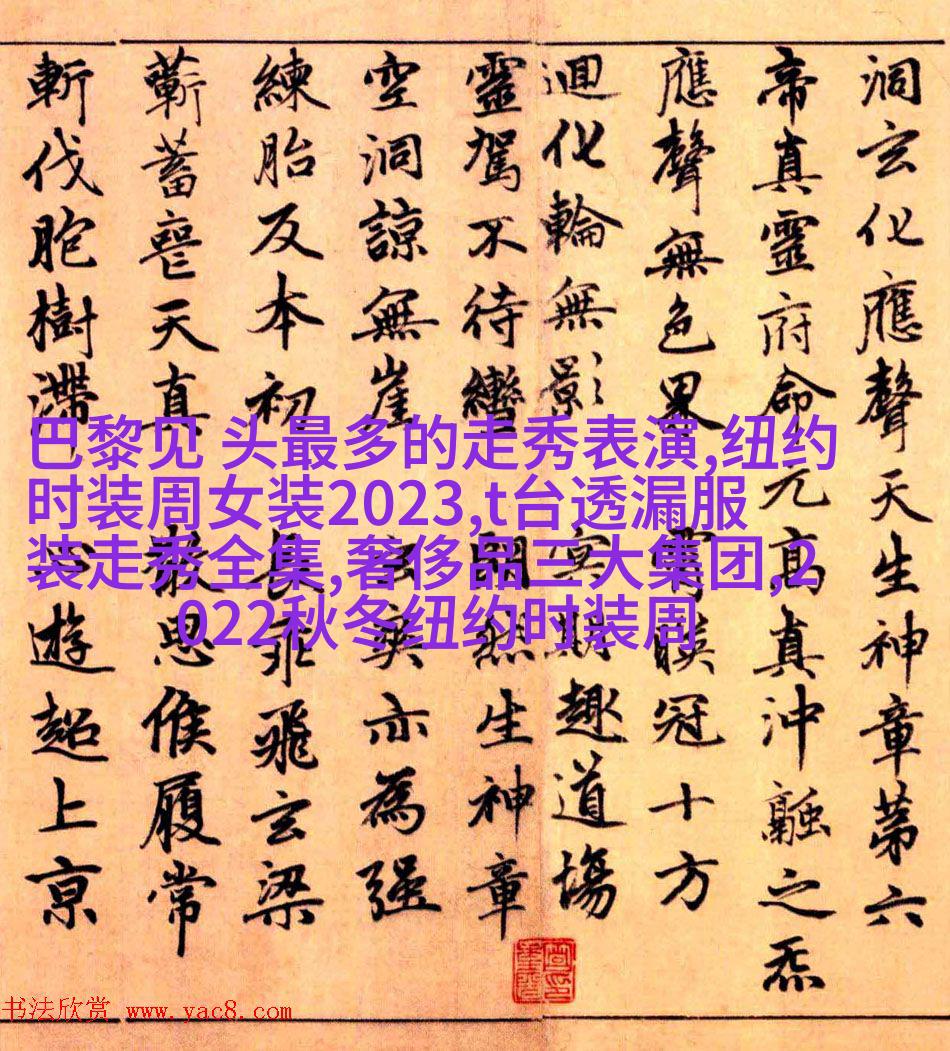 洞玄化應聲天生神章苐六
帝真靈府命元高真沖融之炁
應聲無色界 霄暎冠十方
迴化輪無影 冥期趣道場
靈駕不待轡 朗然生神章
空洞諒無崖 玄爽亦為强
練胎反本初 長乖飛玄梁
蘄蓄喪天真 散思候履常
斬伐胞樹滯 心遊超上京
巴黎见 头最多的走秀表演,纽约
时装周女装2023,t台透漏服
装走秀全集,奢侈品三大集团,2
022秋冬纽约时装周
书法欣赏 www.yac8.com